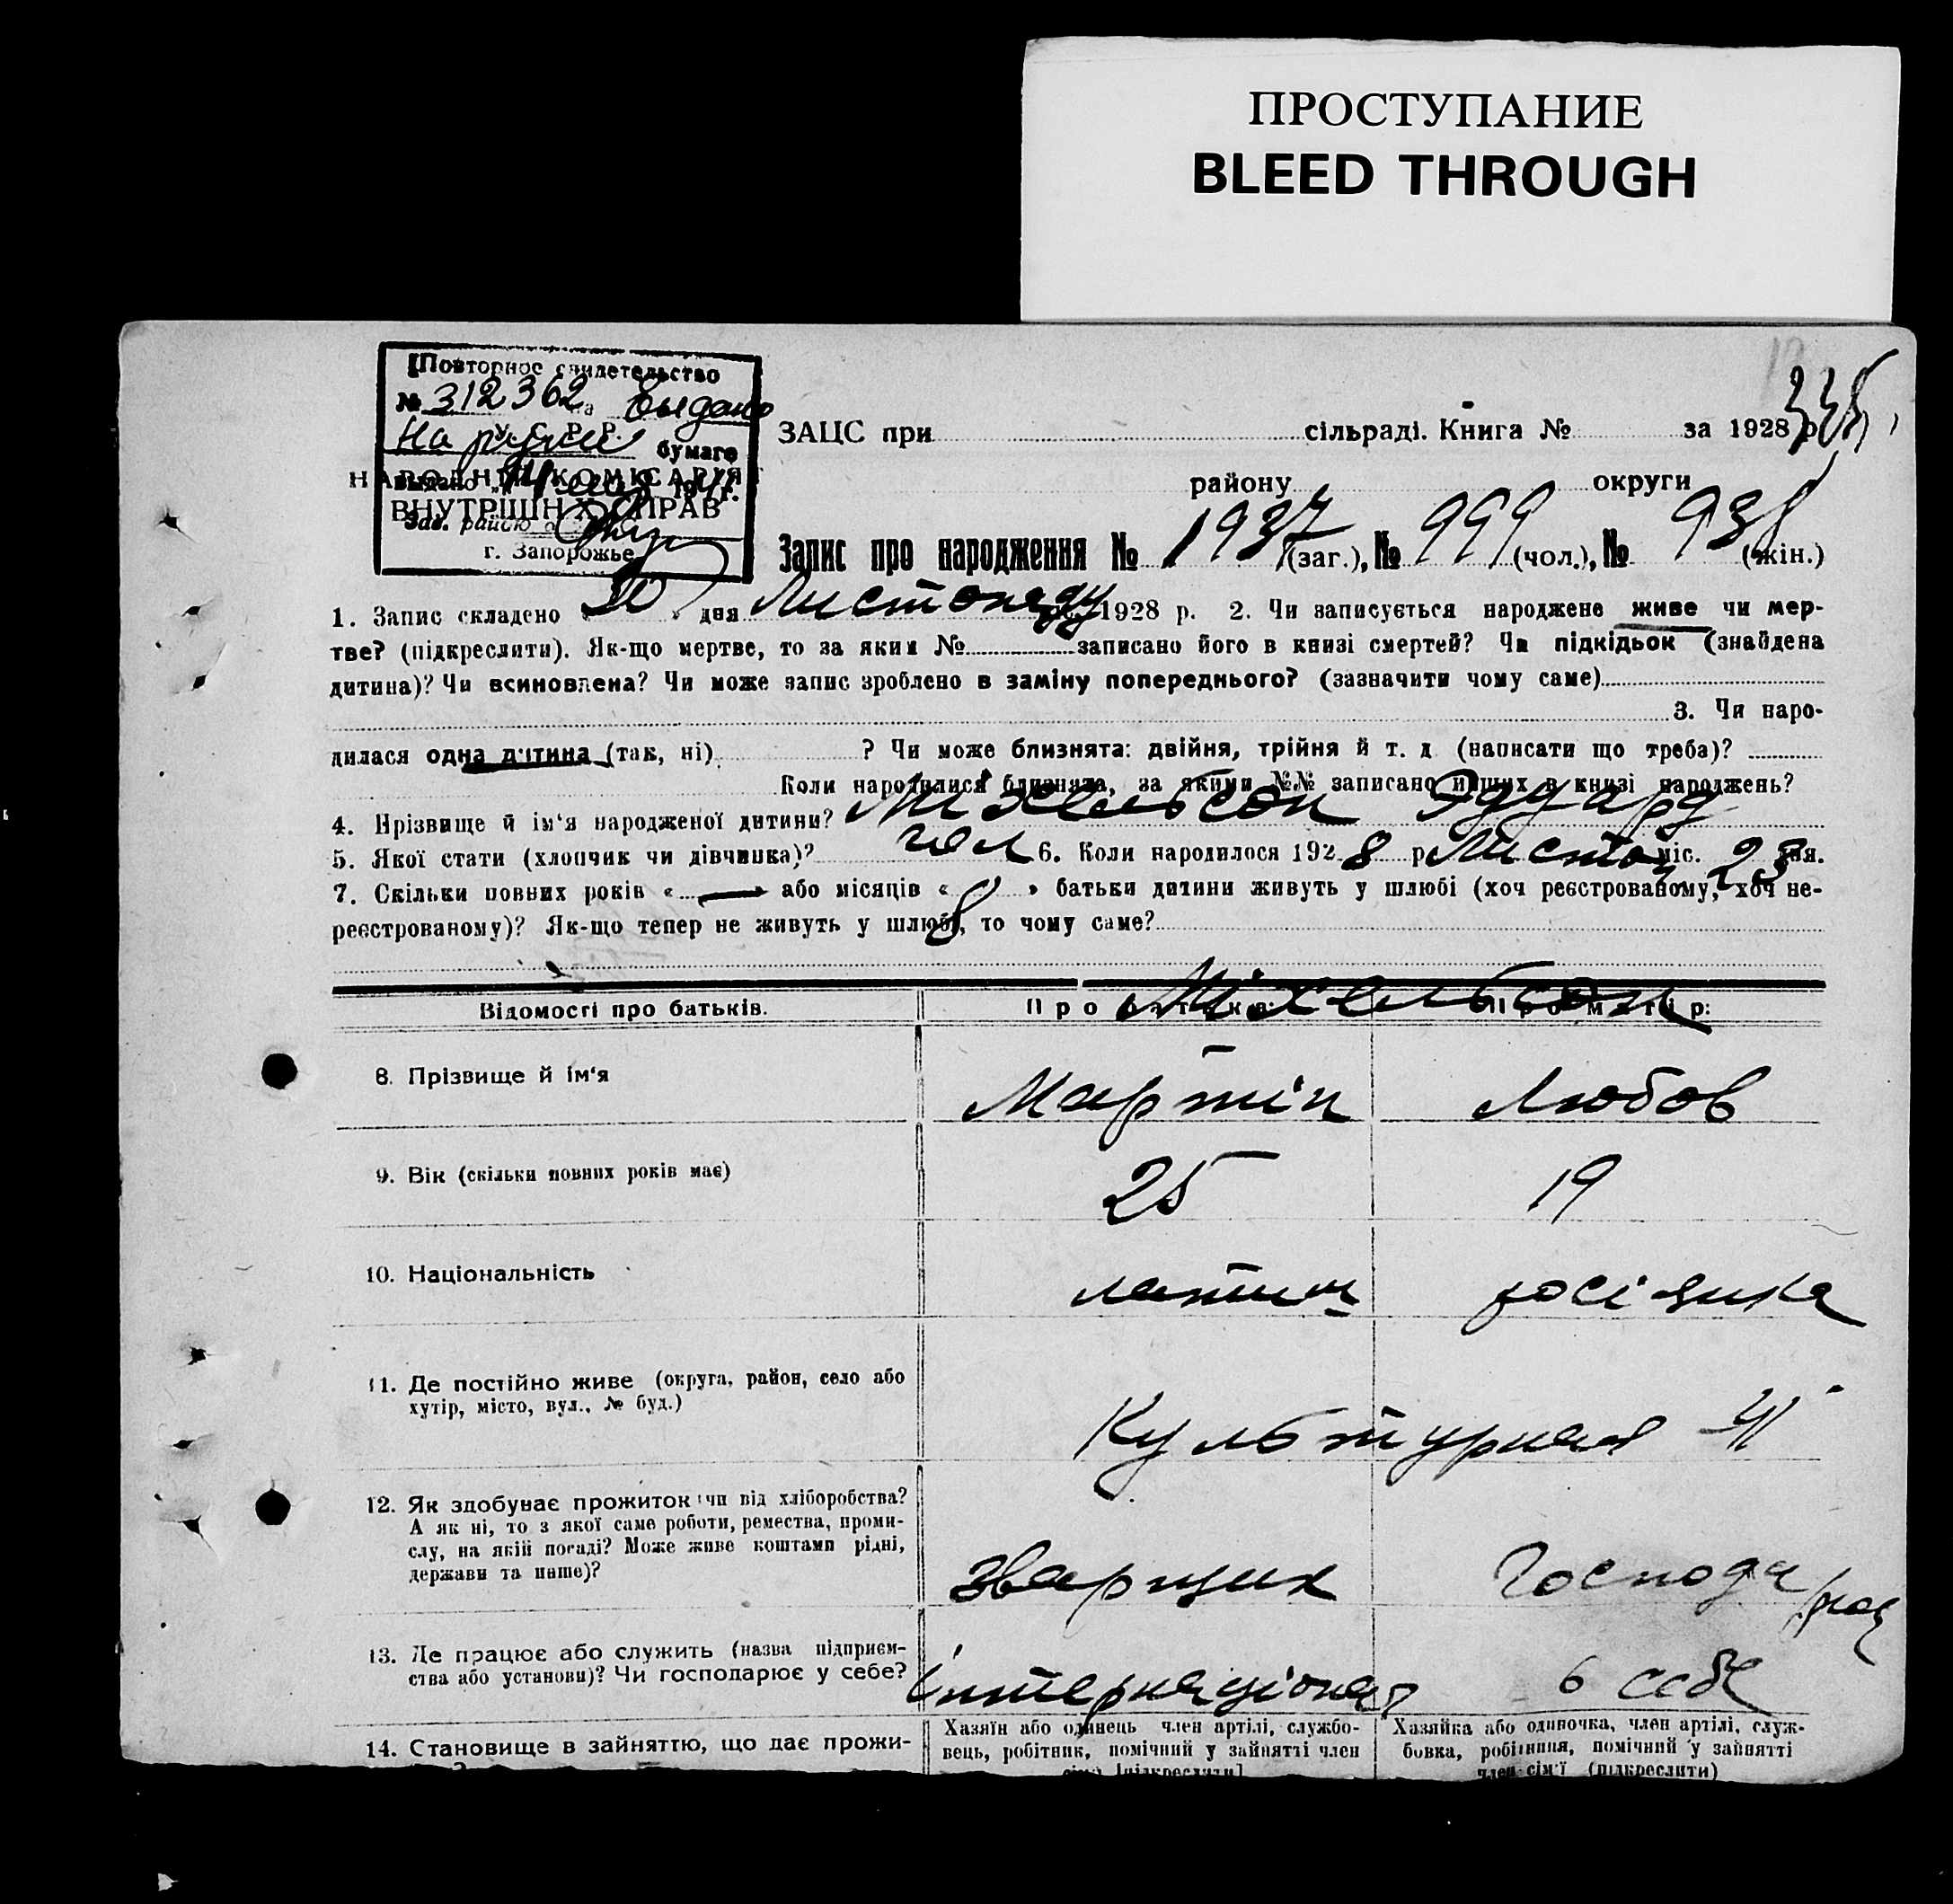 ПРОСТУПАНИЕ
BLEED THROUGH
Повторное свидетельство
№ 312362 на выдано
На руки бумаге
У. С. Р. Р.
НАРОДНІЙ КОМІСАРІЯТ
ВНУТРІШНІХ СПРАВ
г. Запорожье
ЗАЦС при сільраді. Книга № за 1928 р.
району округи
Запис про народження № 1937 (заг.), № 999 (чол.), № 938 (жін.)
1. Запис складено « 30 » дня Листопаду 1928 р. 2. Чи записується народжене живе чи мер-
тве? (підкреслити). Як-що мертве, то за яким № записано його в книзі смертей? Чи підкідьок (знайдена
дитина)? Чи всиновлена? Чи може запис зроблено в заміну попереднього? (зазначити чому саме)
3. Чи наро-
дилася одна дитина (так, ні) ? Чи може близнята: двійня, трійня й т. д. (написати що треба)?
Коли народилися близнята, за якими №№ записано инших в книзі народжень?
4. Прізвище й ім'я народженої дитини? Міхельсон Эдуард
5. Якої стати (хлопчик чи дівчинка)? чол 6. Коли народилося 1928 р. Листоп міс. 23 дня.
7. Скільки повних років « — » або місяців « 8 » батьки дитини живуть у шлюбі (хоч реєстрованому, хоч не-
реєстрованому)? Як-що тепер не живуть у шлюбі, то чому саме?
Відомості про батьків. Про батька: Про матір:
Міхельсон
8. Прізвище й ім'я Мартін Любов
9. Вік (скільки повних років має) 25 19
10. Національність латиш росіянка
11. Де постійно живе (округа, район, село або
хутір, місто, вул., № буд.)
Культурная
12. Як здобуває прожиток: чи від хліборобства?
А як ні, то з якої саме роботи, ремества, проми-
слу, на якій посаді? Може живе коштами рідні,
держави та инше)?
Зварщик Господар
13. Де працює або служить (назва підприєм-
ства або установи)? Чи господарює у себе?
Інтернаціонал в себе
14. Становище в зайняттю, що дає прожи-
Хазяїн або одинець член артілі, службо-
вець, робітник, помічний у зайнятті член
сім'ї [підкреслити]
Хазяйка або одиночка, член артілі, служ-
бовка, робітниця, помічний у зайнятті
член сім'ї (підкреслити)